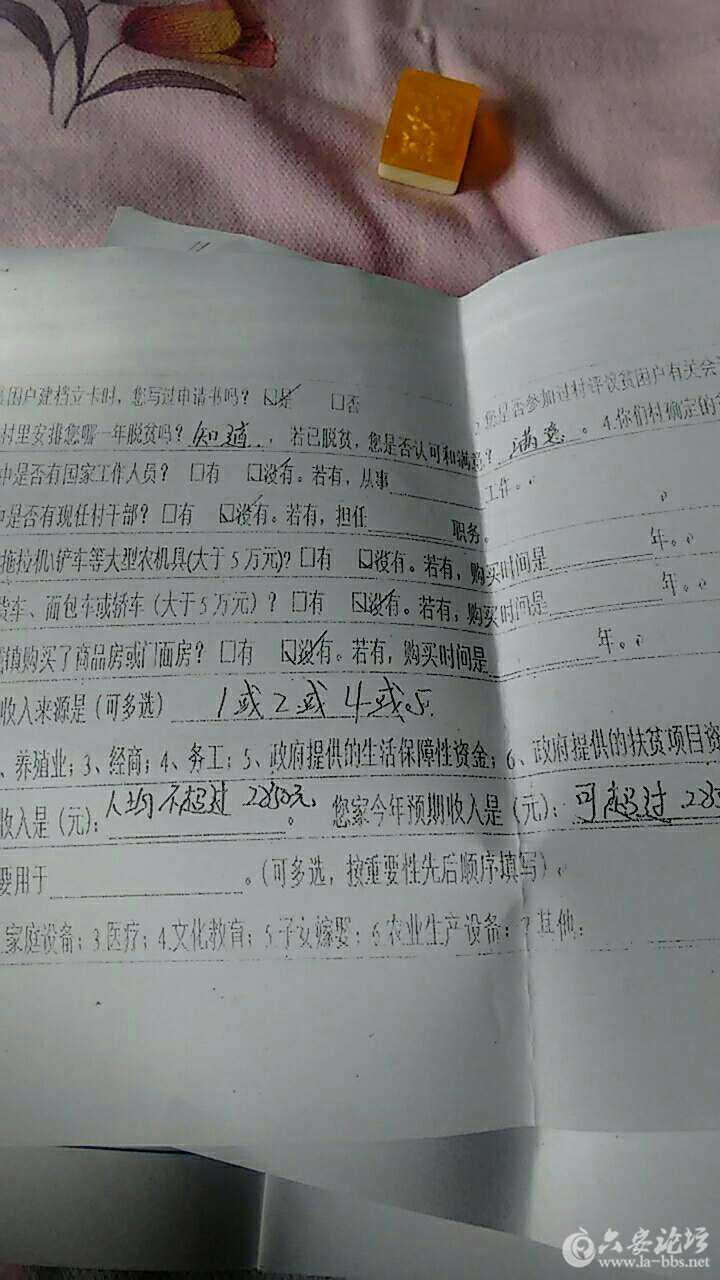 困户建档立卡时，您写过申请书吗？ ☑是 □否 ，您是否参加过村评议贫困户有关会
村里安排您哪一年脱贫吗？知道，若已脱贫，您是否认可和满意？满意。4.你们村确定的
中是否有国家工作人员？ □有 ☑没有。若有，从事 工作。
中是否有现任村干部？ □有 ☑没有。若有，担任 职务。
拖拉机\铲车等大型农机具(大于5万元)? □有 ☑没有。若有，购买时间是 年。
货车、面包车或轿车（大于5万元）？ □有 ☑没有。若有，购买时间是 年。
镇购买了商品房或门面房？ □有 ☑没有。若有，购买时间是 年。
收入来源是（可多选） 1或2或4或5.
、养殖业；3、经商；4、务工；5、政府提供的生活保障性资金；6、政府提供的扶贫项目资
收入是（元）：人均不超过2850元。 您家今年预期收入是（元）：可超过28
要用于 。（可多选，按重要性先后顺序填写）。
家庭设备；3.医疗；4.文化教育；5.子女嫁娶；6.农业生产设备；7.其他：
六安论坛
www.la-bbs.net